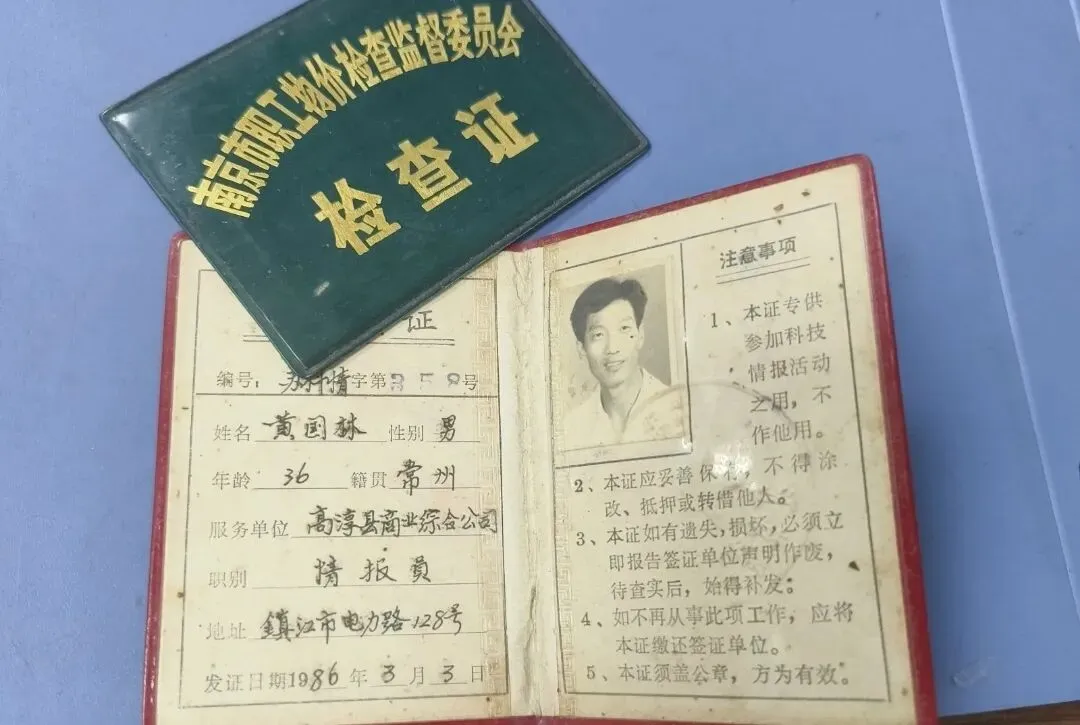 南京市职工物价检查监督委员会
检查证
证
编号：苏科情字第358号
姓名 黄国林 性别 男
年龄 36 籍贯 常州
服务单位 高淳县商业综合公司
职别 情报员
地址 鎮江市电力路128号
发证日期1986年3月3日
注意事项
1、本证专供
参加科技
情报活动
之用，不
作他用。
2、本证应妥善保存，不得涂
改、抵押或转借他人。
3、本证如有遗失，损坏，必须立
即报告签证单位声明作废，
待查实后，始得补发。
4、如不再从事此项工作，应将
本证缴还签证单位。
5、本证须盖公章，方为有效。